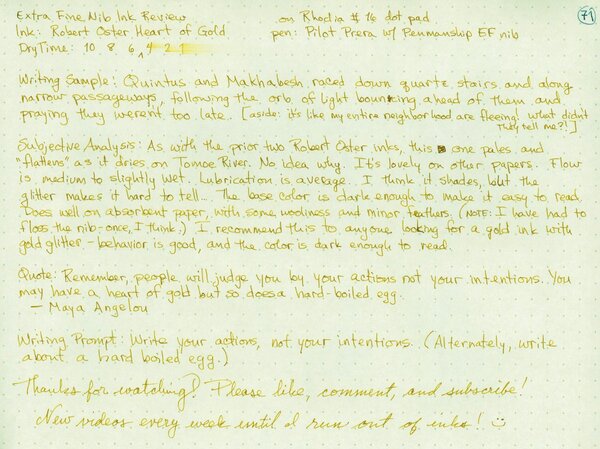 Extra Fine Nib Ink Review on Rhodia #16 dot pad 71
Ink: Robert Oster Heart of Gold pen: Pilot Prera w/ Penmanship EF nib
Dry Time: 10 8 6 4 2 1
Writing Sample: Quintus and Makhabesh raced down quartz stairs and along
narrow passageways, following the orb of light bouncing ahead of them and
praying they weren't too late. [aside: it's like my entire neighborhood are fleeing! what didn't
they tell me?!]
Subjective Analysis: As with the prior two Robert Oster inks, this one pales and
"flattens" as it dries on Tomoe River. No idea why. It's lovely on other papers. Flow
is medium to slightly wet. Lubrication is average. I think it shades, but the
glitter makes it hard to tell... The base color is dark enough to make it easy to read.
Does well on absorbent paper, with some wooliness and minor feathers. (NOTE: I have had to
floss the nib - once, I think.) I recommend this to anyone looking for a gold ink with
gold glitter - behavior is good, and the color is dark enough to read.
Quote: Remember, people will judge you by your actions not your intentions. You
may have a heart of gold but so does a hard-boiled egg.
— Maya Angelou
Writing Prompt: Write your actions, not your intentions. (Alternately, write
about a hard boiled egg.)
Thanks for watching! Please like, comment, and subscribe!
New videos every week until I run out of inks! ☺